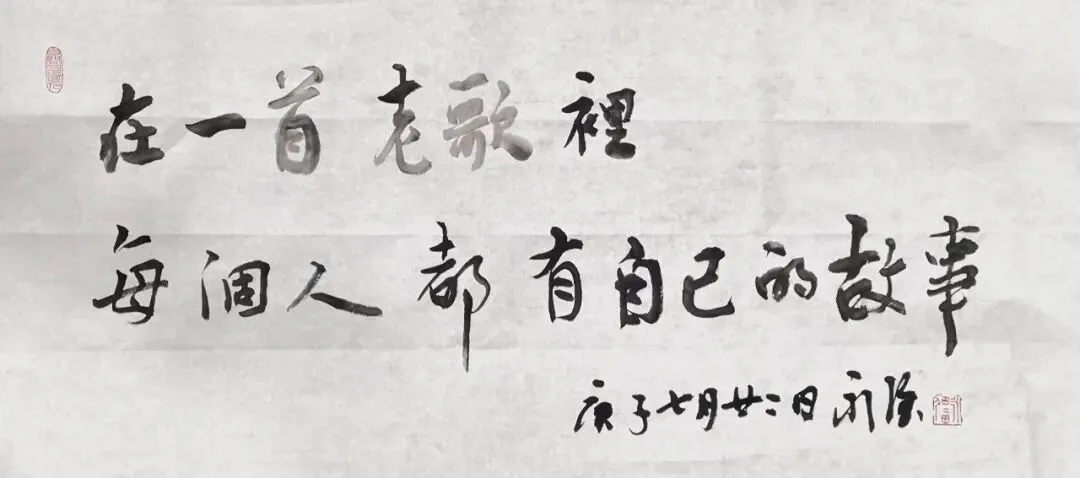 在一首老歌裡
每個人都有自己的故事
庚子七月廿二日永隆